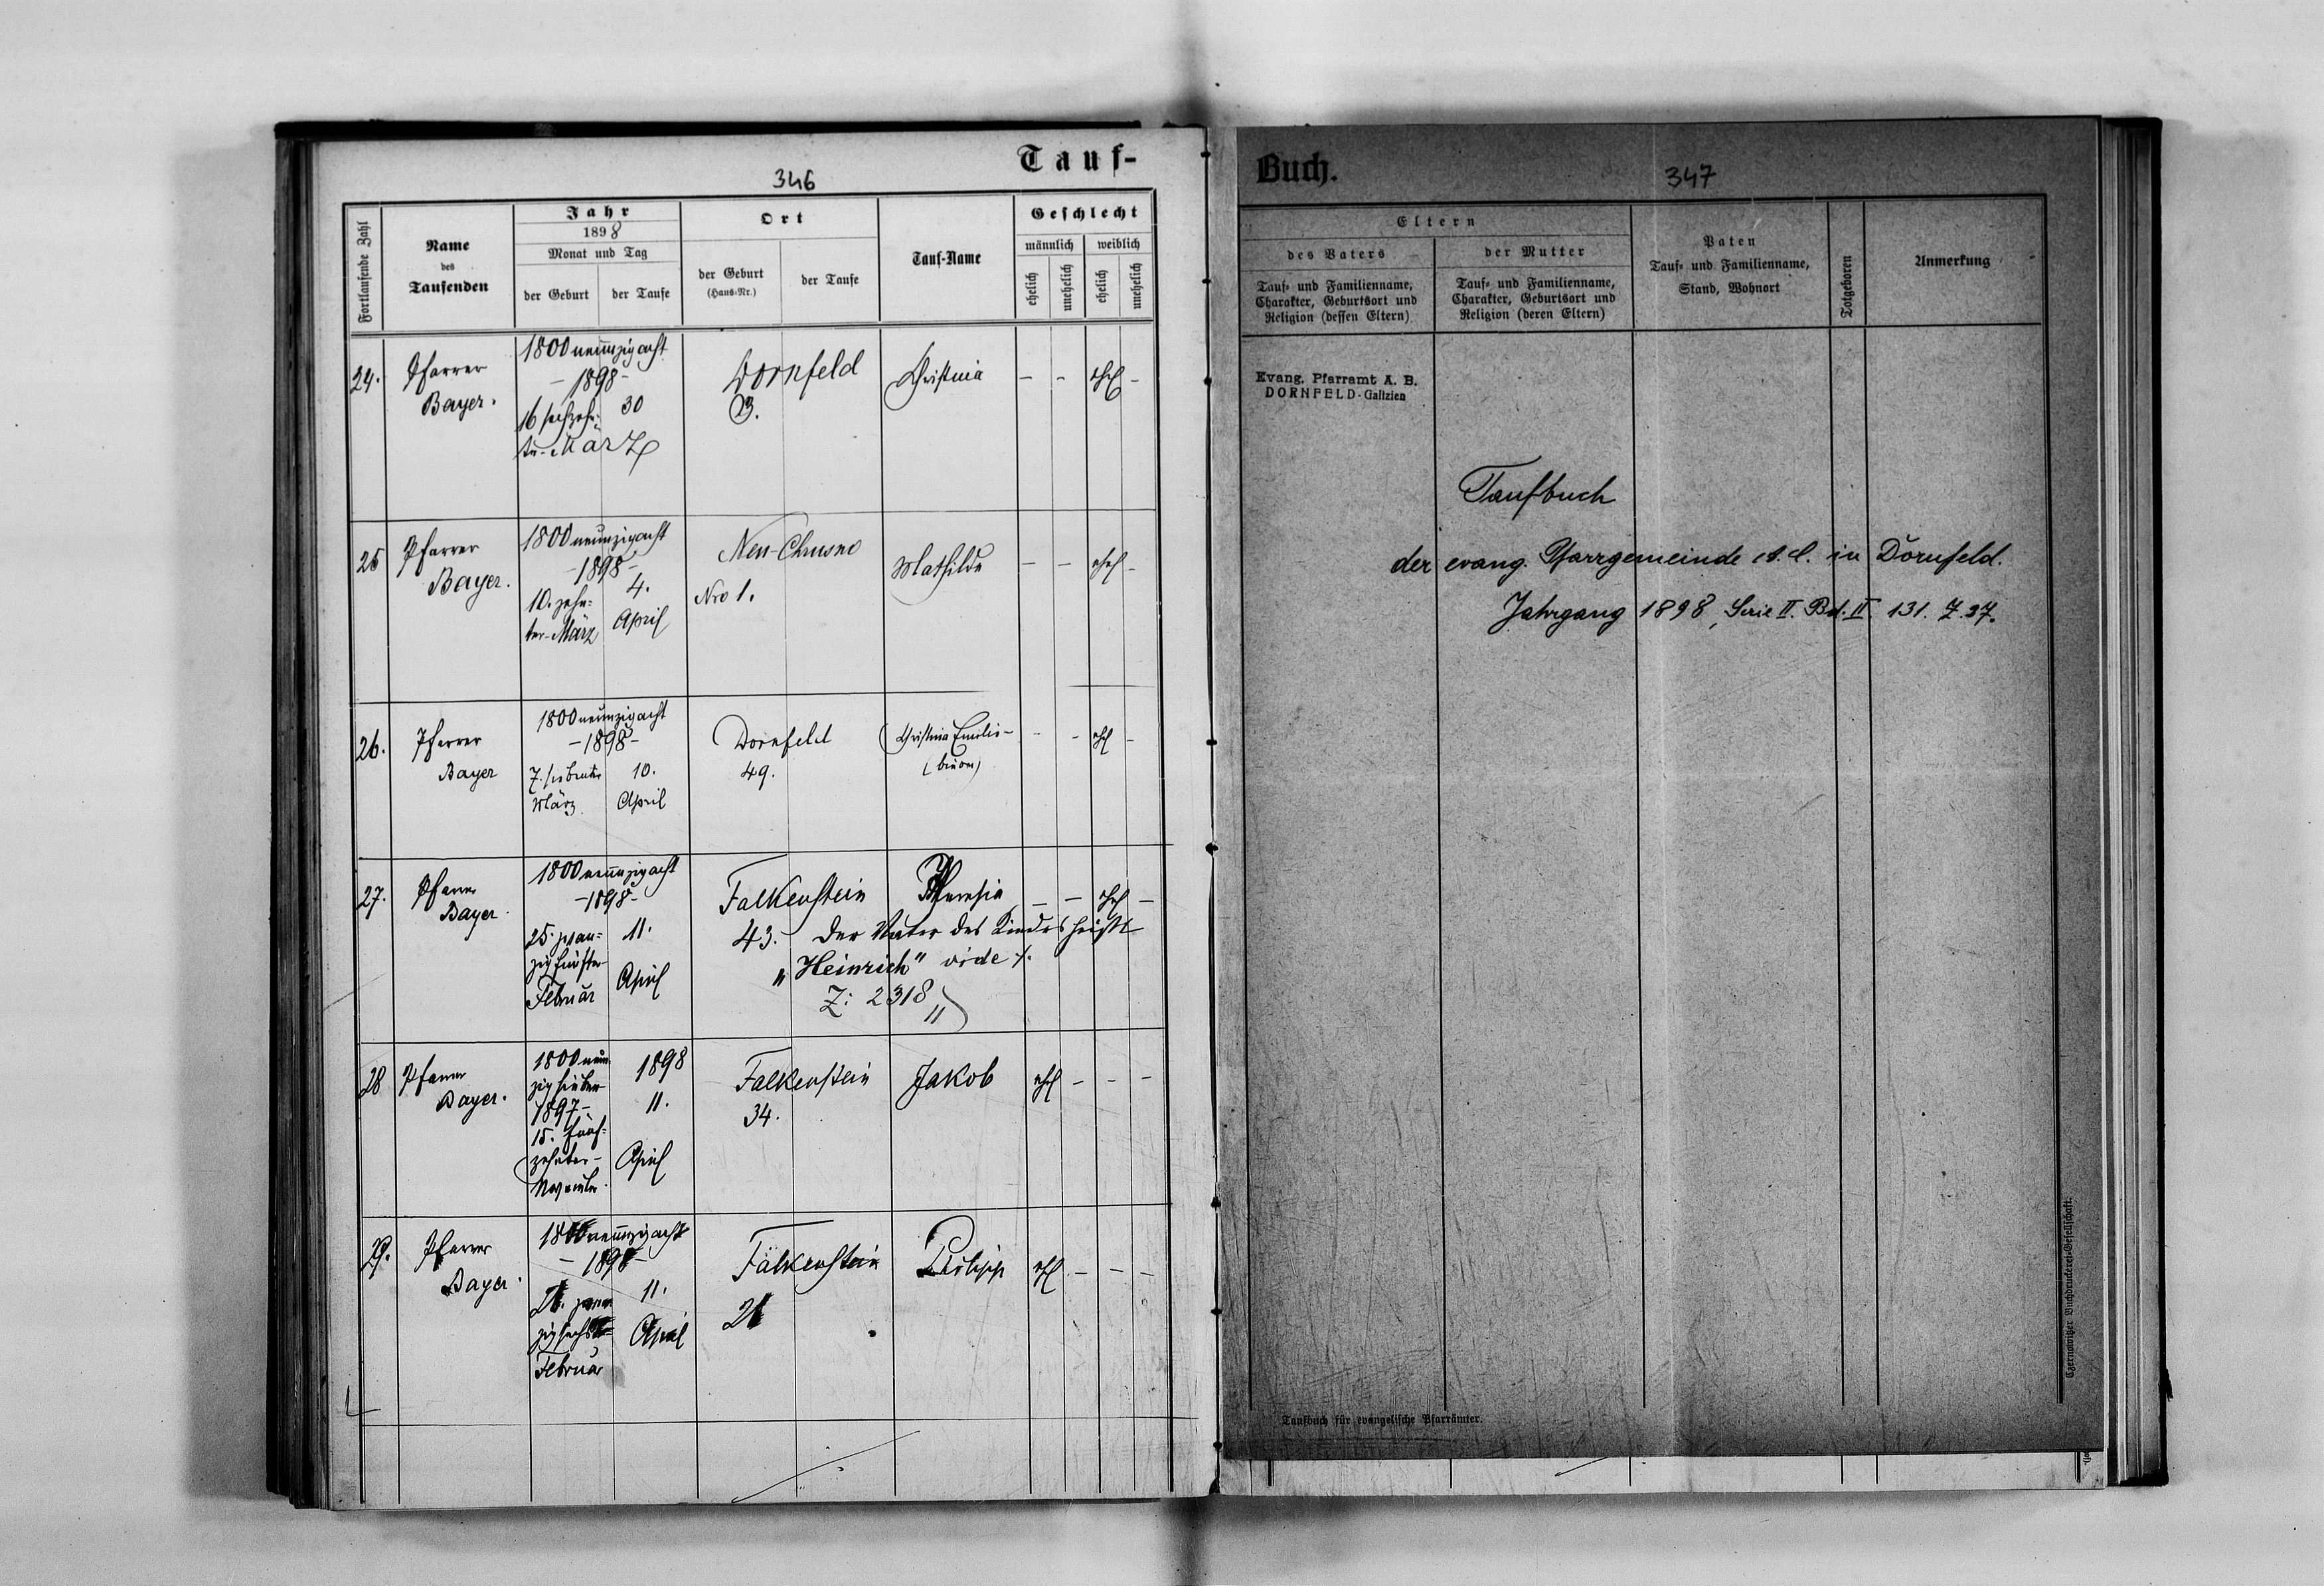 Tauf-
346
Fortlaufende Zahl
Name
des
Taufenden
Jahr
1898
Monat und Tag
der Geburt
der Taufe
Ort
der Geburt
(Haus-Nr.)
der Taufe
Tauf-Name
Geschlecht
männlich
weiblich
ehelich
unehelich
ehelich
unehelich
24.
Pfarrer
Bayer.
1800neunzigacht
-1898-
16 sechzehn-
ter-März
30
Dornfeld
3.
Christina
- - ehel -
25
Pfarrer
Bayer.
1800neunzigacht
-1898-
10. zehn-
ter-März
4.
April
Neu-Chrusno
Nro 1.
Mathilde
- - ehel -
26.
Pfarrer
Bayer
1800neunzigacht
-1898-
7. siebenter
März
10.
April
Dornfeld
49.
Christina Emilie-
- - ehel -
27.
Pfarrer
Bayer.
1800neunzigacht
-1898-
25. zwan-
zigfünfter
Februar
11.
April
Falkenstein
43.
Theresia
- - ehel -
Der Vater des Kindes heißt
"Heinrich" vide
Z: 2318
28
Pfarrer
Bayer.
1800neun-
zigsieben
1897-
15. fünf-
zehnter-
November
1898
11.
April
Falkenstein
34.
Jakob
ehel - - -
29.
Pfarrer
Bayer.
1800neunzigacht
-1898-
zigsechs
Februar
11.
April
Falkenstein
Philipp
ehel - - -
Buch.
347
Eltern
des Vaters
Tauf- und Familienname,
Charakter, Geburtsort und
Religion (dessen Eltern)
der Mutter
Tauf- und Familienname,
Charakter, Geburtsort und
Religion (deren Eltern)
Paten
Tauf- und Familienname,
Stand, Wohnort
Totgeboren
Anmerkung
Evang. Pfarramt A. B.
DORNFELD-Galizien
Taufbuch
der evang. Pfarrgemeinde A. C. in Dornfeld.
Jahrgang 1898, Serie II. Bd. II. 131. Z. 37.
Taufbuch für evangelische Pfarrämter.
Czernowitzer Buchdruckerei-Gesellschaft.